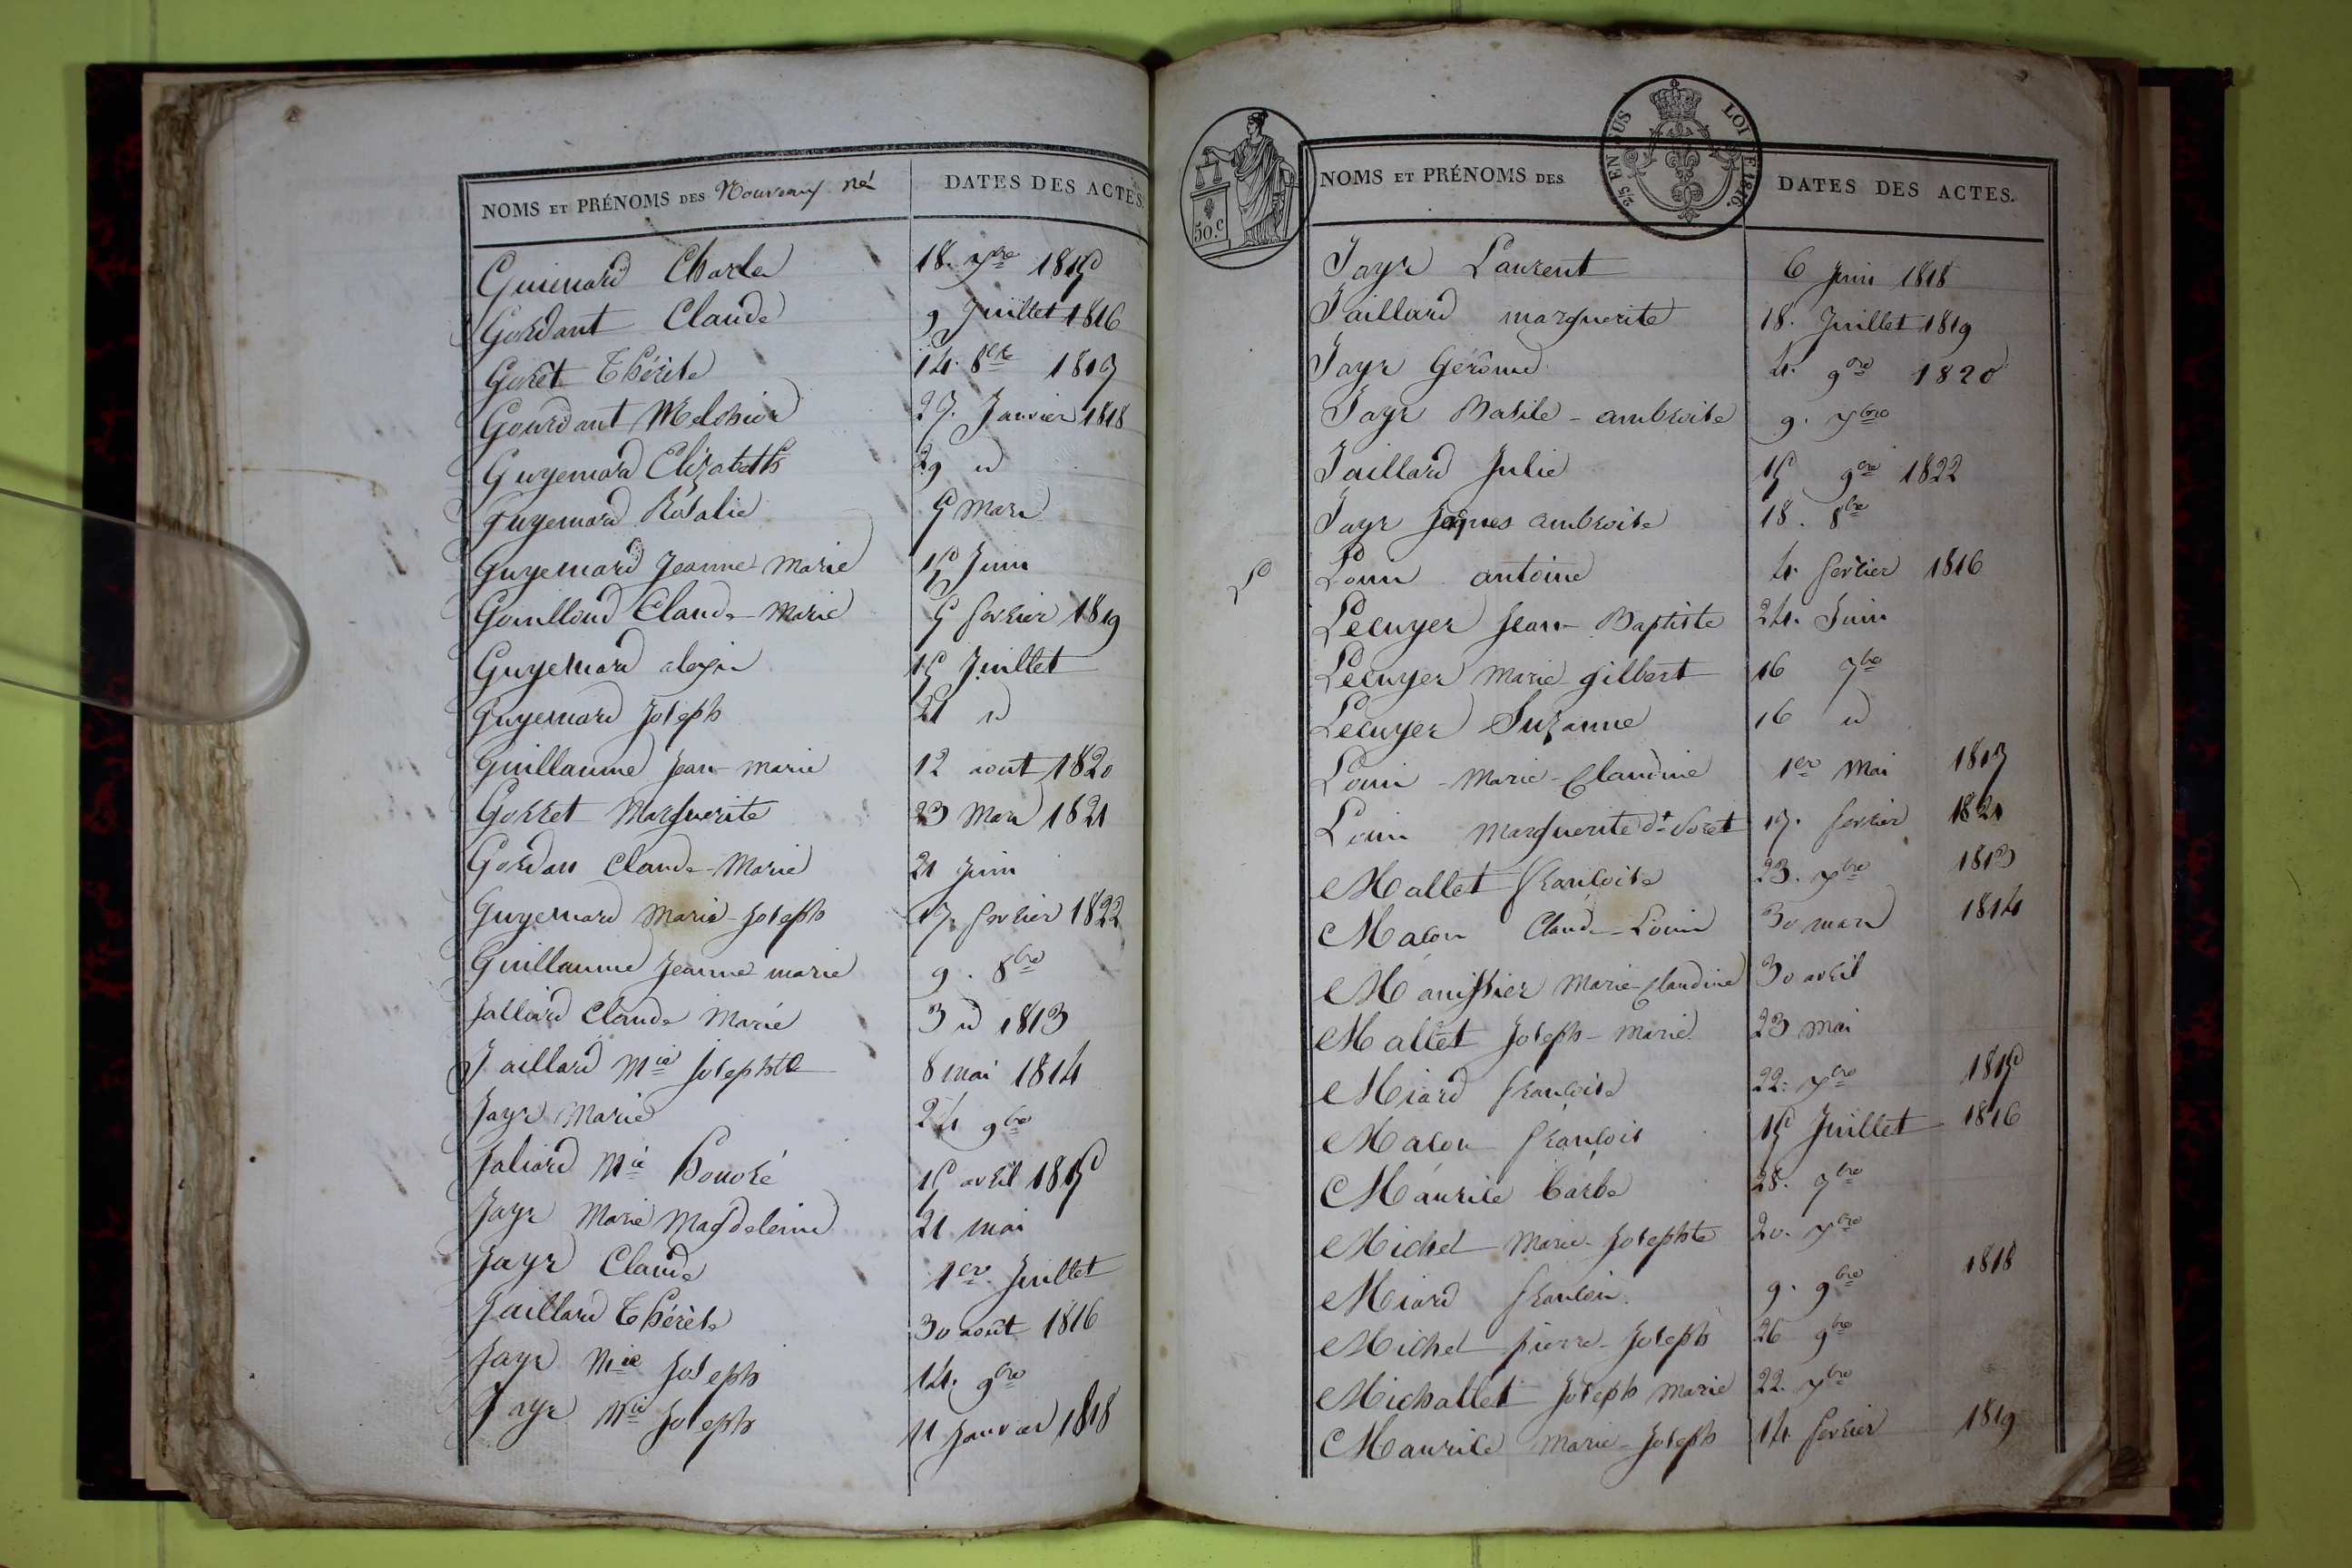 NOMS ET PRÉNOMS DES Nouveaux né DATES DES ACTES.
Guimard Charles 18. 7bre 1815
Gordant Claude 9 Juillet 1816
Goret Thérèse 14. 8bre 1817
Gourdant Melchior 27. Janvier 1818
Guyemard Elizabeth 29 id
Guyemard Rosalie 5 Mars
Guyemard Jeanne Marie 15 Juin
Gouilloud Claude Marie 5 fevrier 1819
Guyemard alexis 15 Juillet
Guyemard Joseph 21 id
Guillaume Jean-marie 12 aout 1820
Gorret Marguerite 23 Mars 1821
Gordan Claude-Marie 21 Juin
Guyemard Marie-Joseph 17. fevrier 1822
Guillaume Jeanne marie 9. 8bre
Jalliard Claude Marie 3 id 1813
Jaillard Mie Josephte 8 mai 1814
Jayr Marie 24 9bre
Jaliard Mie honoré 15 avril 1815
Jayr Marie Magdeleine 21 mai
Jayr Claude 1er Juillet
Jaillard Thérèse 30 août 1816
Jayr Mie Joseph 14. 9bre
Jayr Mie Joseph 11 Janvier 1818
50.c
2/5 EN SUS LOI DE 1816.
NOMS ET PRÉNOMS DES DATES DES ACTES.
Jayr Laurent 6 Juin 1818
Jaillard marguerite 18. Juillet 1819
Jayr Gérôme 4. 9bre 1820
Jayr Basile-ambroise 9. 7bre
Jaillard Julie 15 9bre 1822
Jayr Jaques ambroise 18. 8bre
L Louis antoine 4 fevrier 1816
Lecuyer Jean-Baptiste 24. Juin
Lecuyer Marie gilbert 16 7bre
Lecuyer Suzanne 16 id
Louis-Marie-Claudine 1er Mai 1817
Louis Marguerite dt Soret 17. fevrier 1821
Mallet françoise 23. 7bre 1813
Macon Claude-Louis 30 mars 1814
Manissier Marie-Claudine 30 avril
Mallet Joseph-Marie 23 mai
Miard françoise 22. 7bre 1815
Macon françois 15 Juillet 1816
Maurice barbe 28. 7bre
Michel Marie-Josephte 20. 7bre
Miard françois 9. 9bre 1818
Michel pierre-Joseph 26 9bre
Michallet Joseph marie 22. 7bre
Maurice Marie-Joseph 14 fevrier 1819